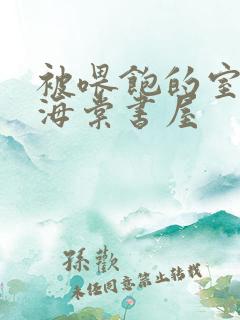 被喂饱的室
海棠书屋
孙欢
未经同意禁止转载